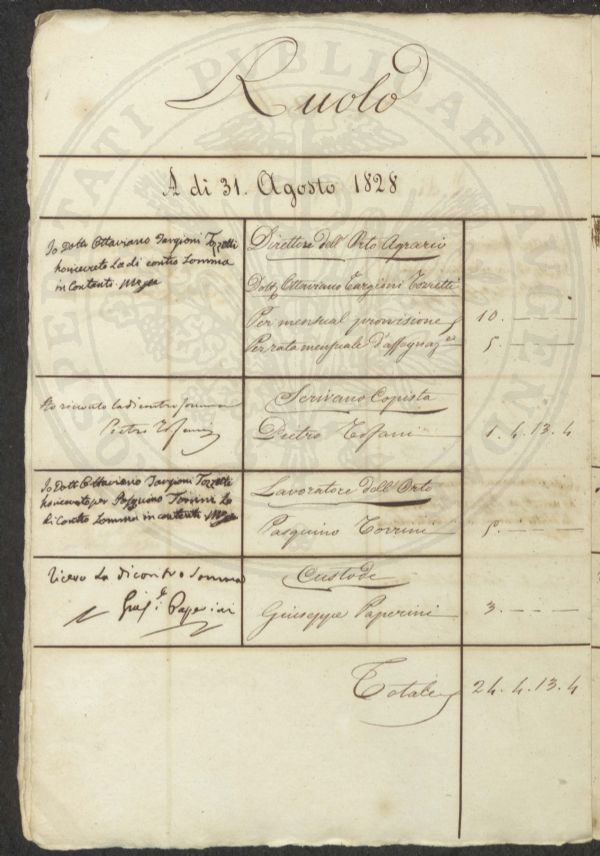 Ruolo
A di 31. Agosto 1828
Io Dottr Ottaviano Targioni Tozzetti
ho ricevuto La di contro Somma
in Contanti
Direttore dell' Orto Agrario
Dottr Ottaviano Targioni Tozzetti
Per mensual provvisione
10. — — —
Per rata mensuale d'assegnaz.ne
5. — — —
Ho ricevuto la di contro somma
Pietro Tofani
Scrivano Copista
Pietro Tofani
1. 4. 13. 4
Io Dott Ottaviano Targioni Tozzetti
ho ricevuto per Pasquino Torrini La
di Contro Somma in contanti
Lavoratore dell' Orto
Pasquino Torrini
5. — — —
ricevo La di contro Somma
Giusp.e Paperini
Custode
Giuseppe Paperini
3. — — —
Totale
24. 4. 13. 4
PROSPERITATI PUBLICAE AUGENDAE